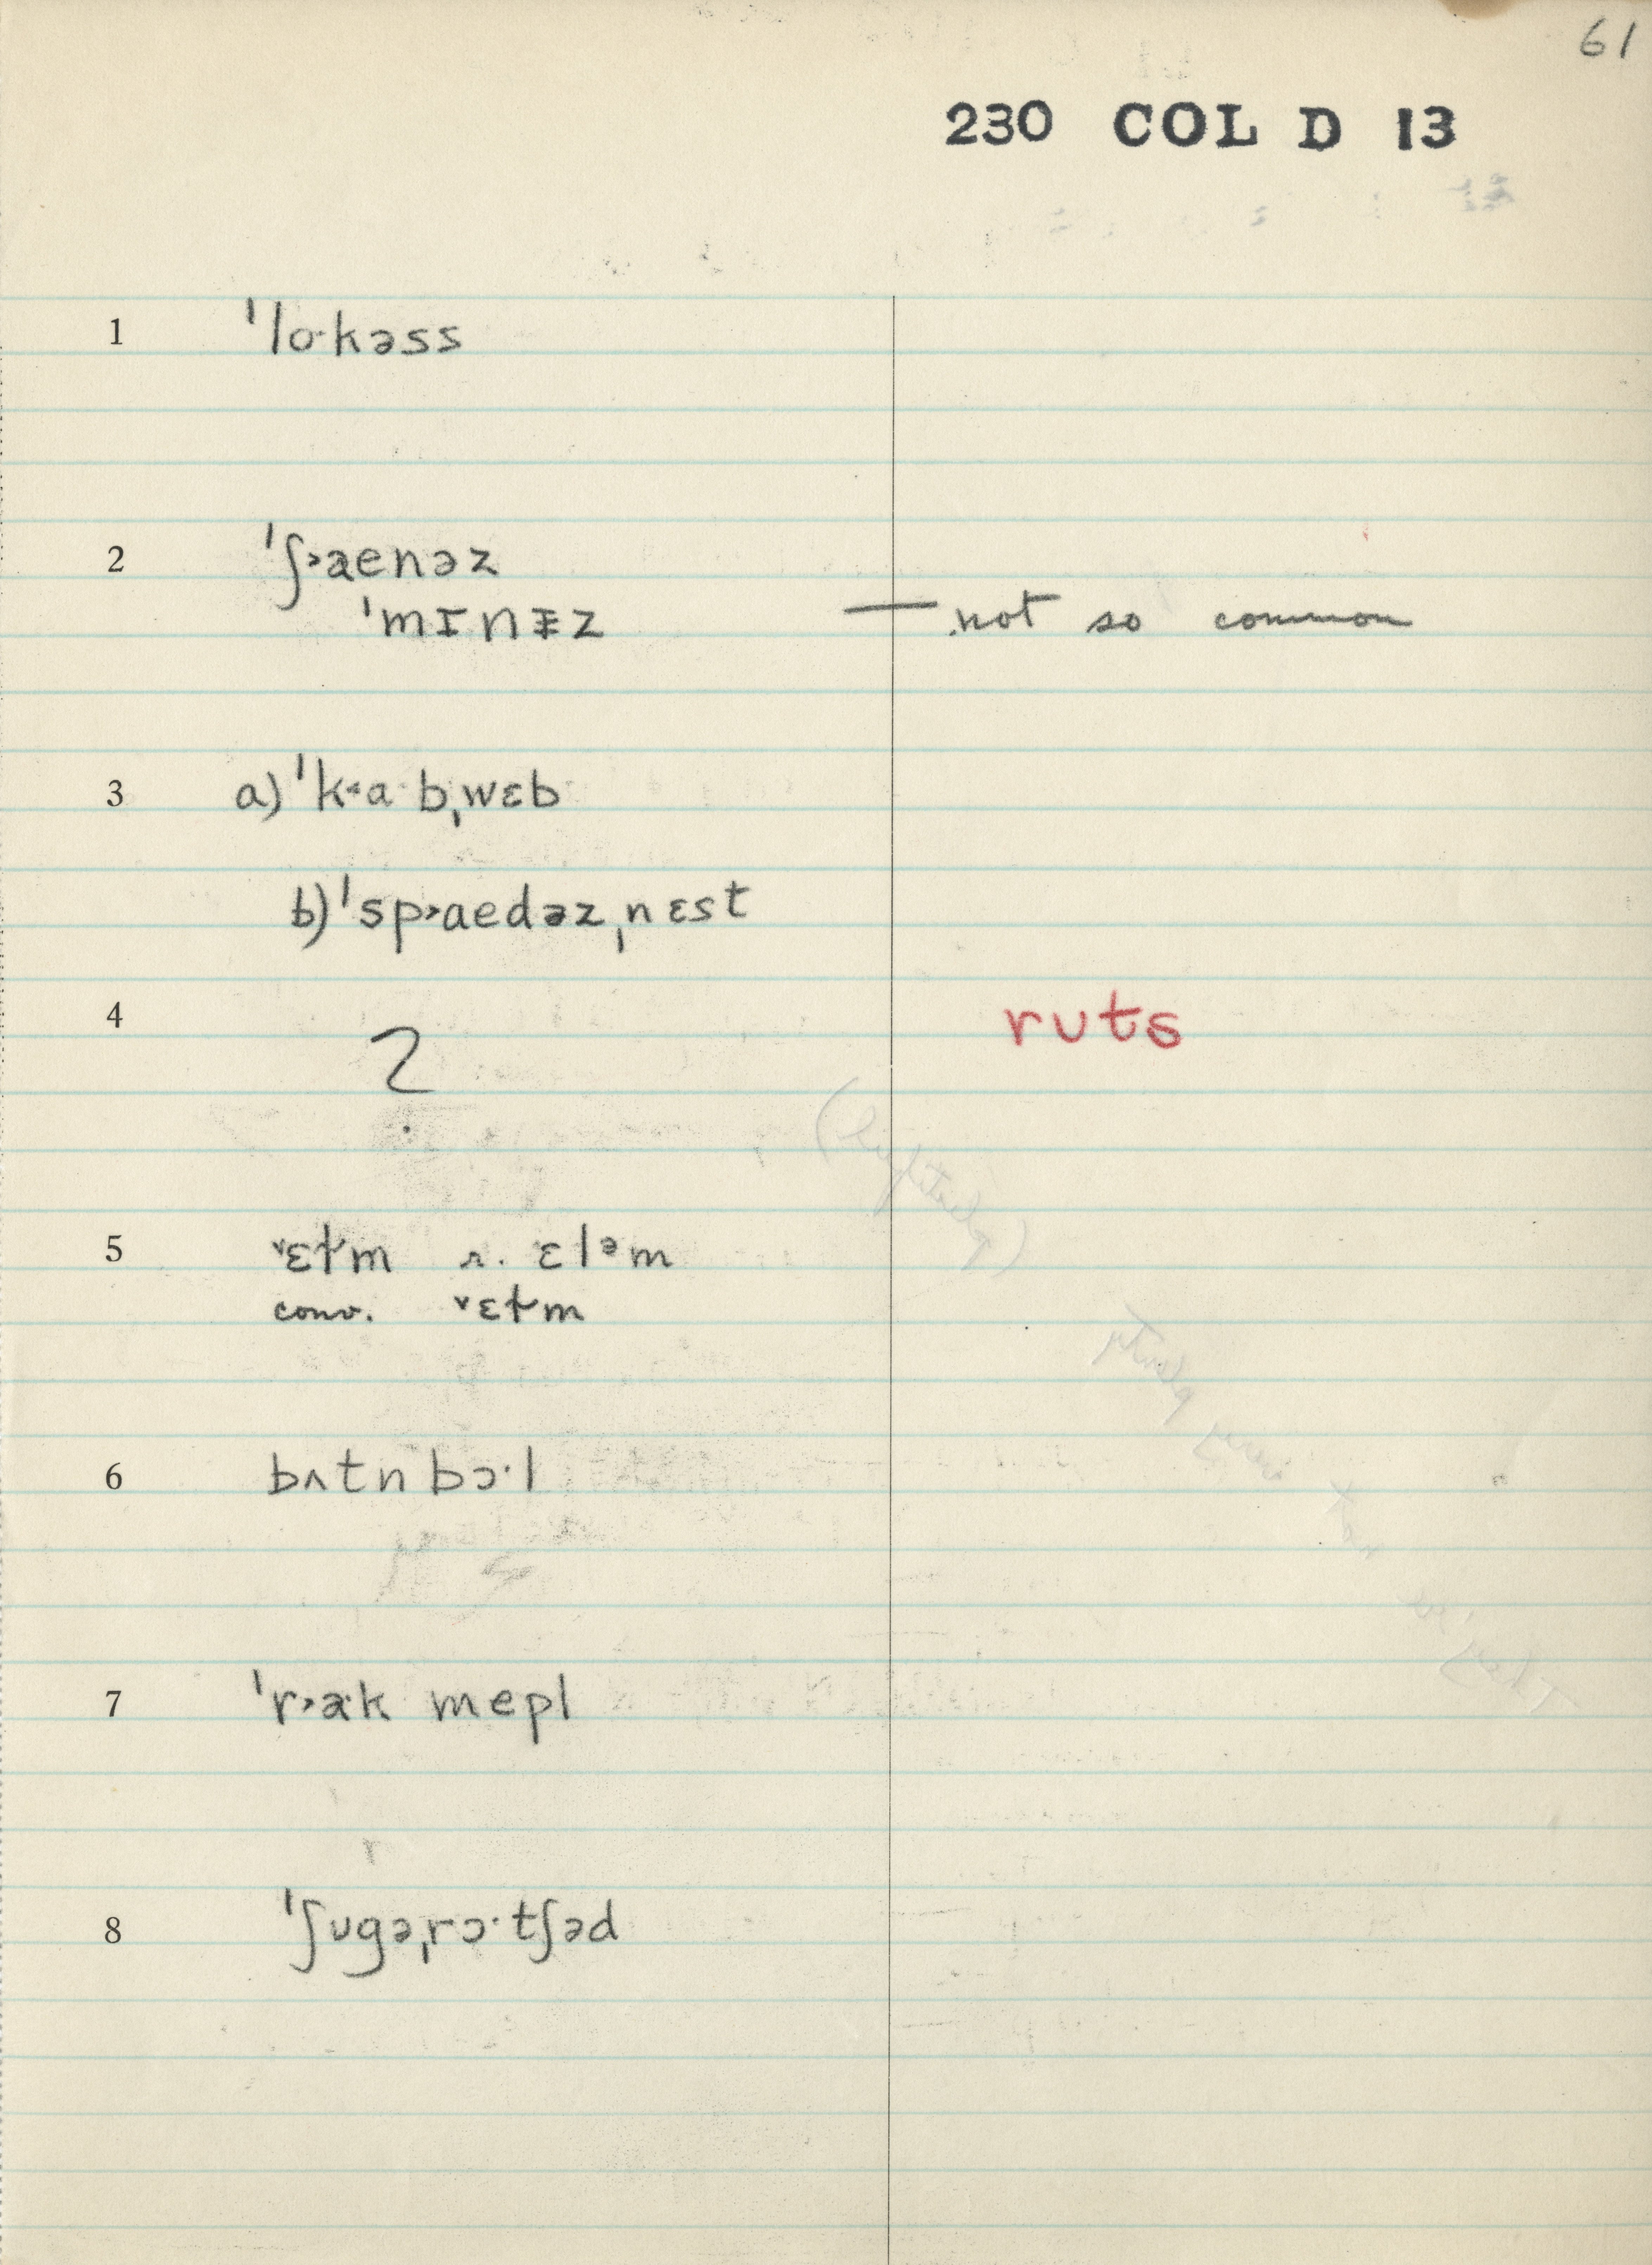 61
230 COL D 13
1 ˈlo·kəss
2 ˈʃ˃aenəz
ˈmɪnɪ̵z — not so common
3 a) ˈk˂a·bˌwɛb
b) ˈsp˃aedəzˌnɛst
4 ? ruts
5 ˅ɛɫm r. ɛlᵊm
conv. ˅ɛɫm
6 bʌtnbɔ·l
7 ˈr˃a·k mepl
8 ˈʃʊgəˌrɔ·tʃəd